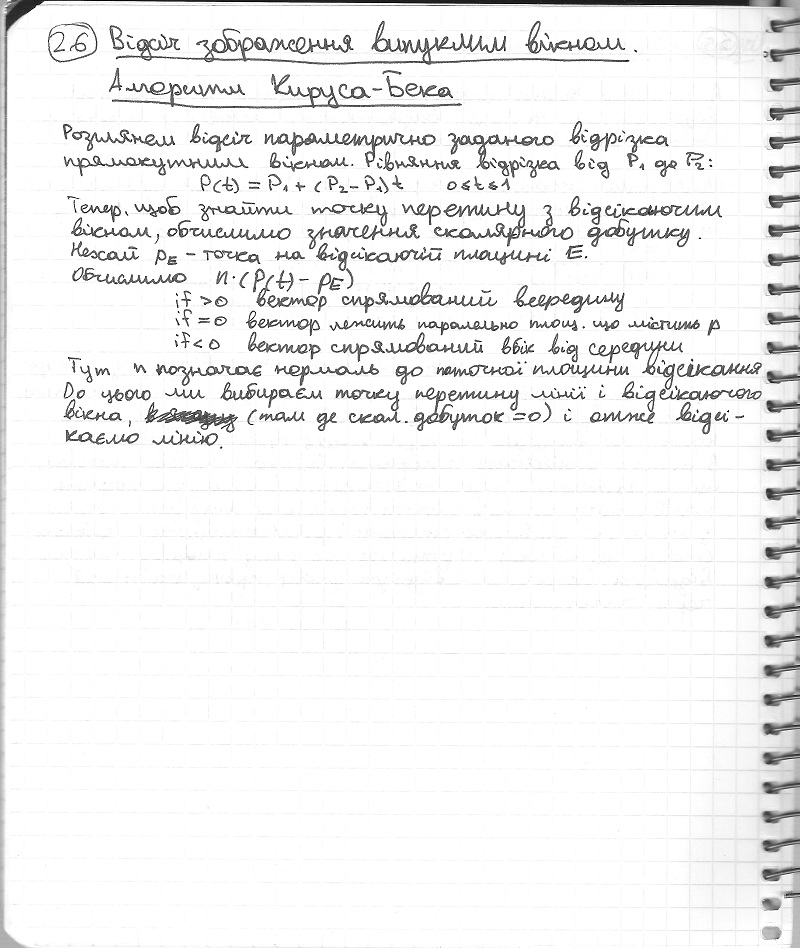 2.6 Відсіч зображення випуклим вікном.
Алгоритм Кируса-Бека
Розглянем відсіч параметрично заданого відрізка
прямокутним вікном. Рівняння відрізка від P₁ до P₂:
P(t) = P₁ + (P₂ - P₁)t 0≤t≤1
Тепер, щоб знайти точку перетину з відсікаючим
вікном, обчислимо значення скалярного добутку.
Нехай pE - точка на відсікаючій площині E.
Обчислимо n·(P(t) - pE)
if >0 вектор спрямований всередину
if =0 вектор лежить паралельно площ. що містить p
if <0 вектор спрямований вбік від середини
Тут n позначає нормаль до поточної площини відсікання
До цього ми вибираєм точку перетину лінії і відсікаючого
вікна, (там де скал. добуток =0) і отже відсі-
каємо лінію.